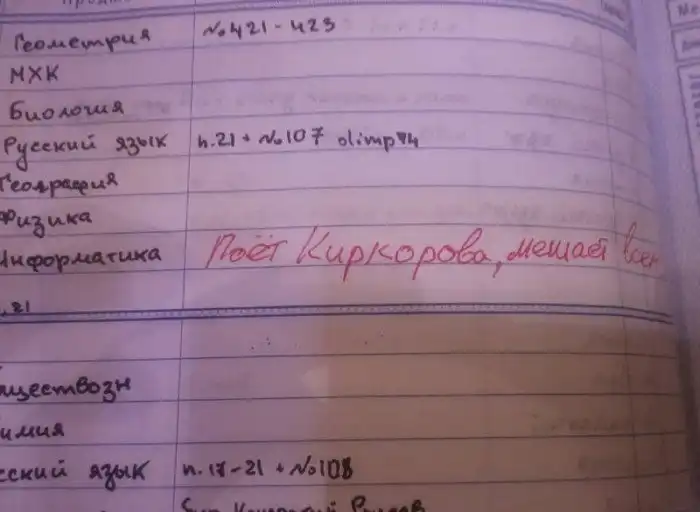 Геометрия №421-423
МХК
Биология
Русский язык п.21 + №107 olimp74
География
Физика
Информатика Поёт Киркорова, мешает всем
п.21
Обществозн
Химия
сский язык п.17-21 + №108